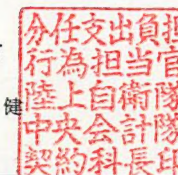 健
分任支出負担
行為担当官
陸上自衛隊
中央会計隊
契約科長印